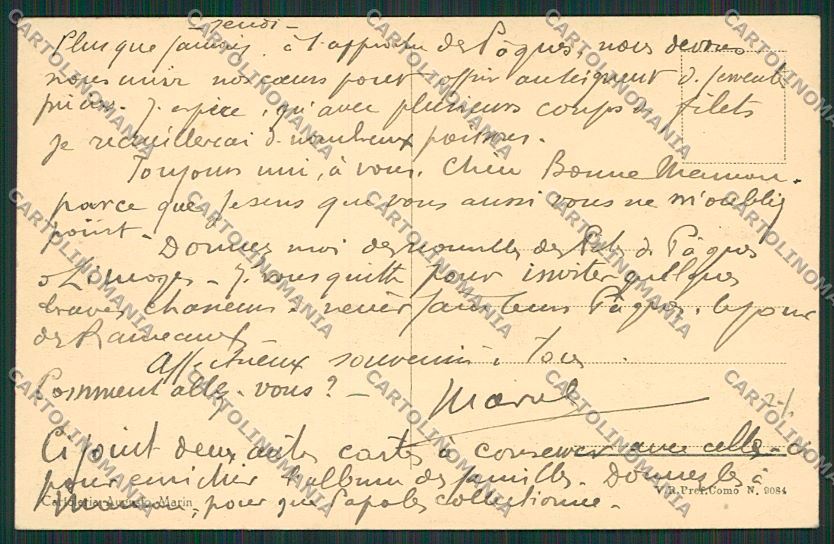 Jeudi -
Plus que jamais, à l'approche de Pâques, nous devons
nous unir nos cœurs pour offrir de ferventes
prières. J'espère, qu'avec plusieurs coups de filets
je recueillerai de nombreux poissons.
Toujours uni, à vous. Chère Bonne Maman.
parce que je sens que vous aussi vous ne m'oubliez
point. -
Donnez moi des nouvelles des de Pâques
à Limoges - Je vous quitte pour inviter quelques
braves à venir faire leurs Pâques. le jour
des Rameaux
Affectueux souvenir à Tous.
Comment allez-vous? -
Marcel
Ci joint deux autres cartes à conserver avec celle-ci
pour enrichir l'album de famille. Donnez les à
Maman, pour que Papa les collectionne.
Cartoleria Augusto Marin
V. R. Pref. Como N. 9084
CARTOLINOMANIA